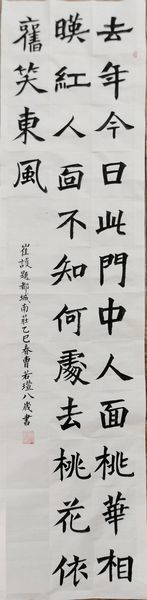 去年今日此門中人面桃華相
暎紅人面不知何處去桃花依
舊笑東風
崔護題都城南莊乙巳春曹若瑄八歲書